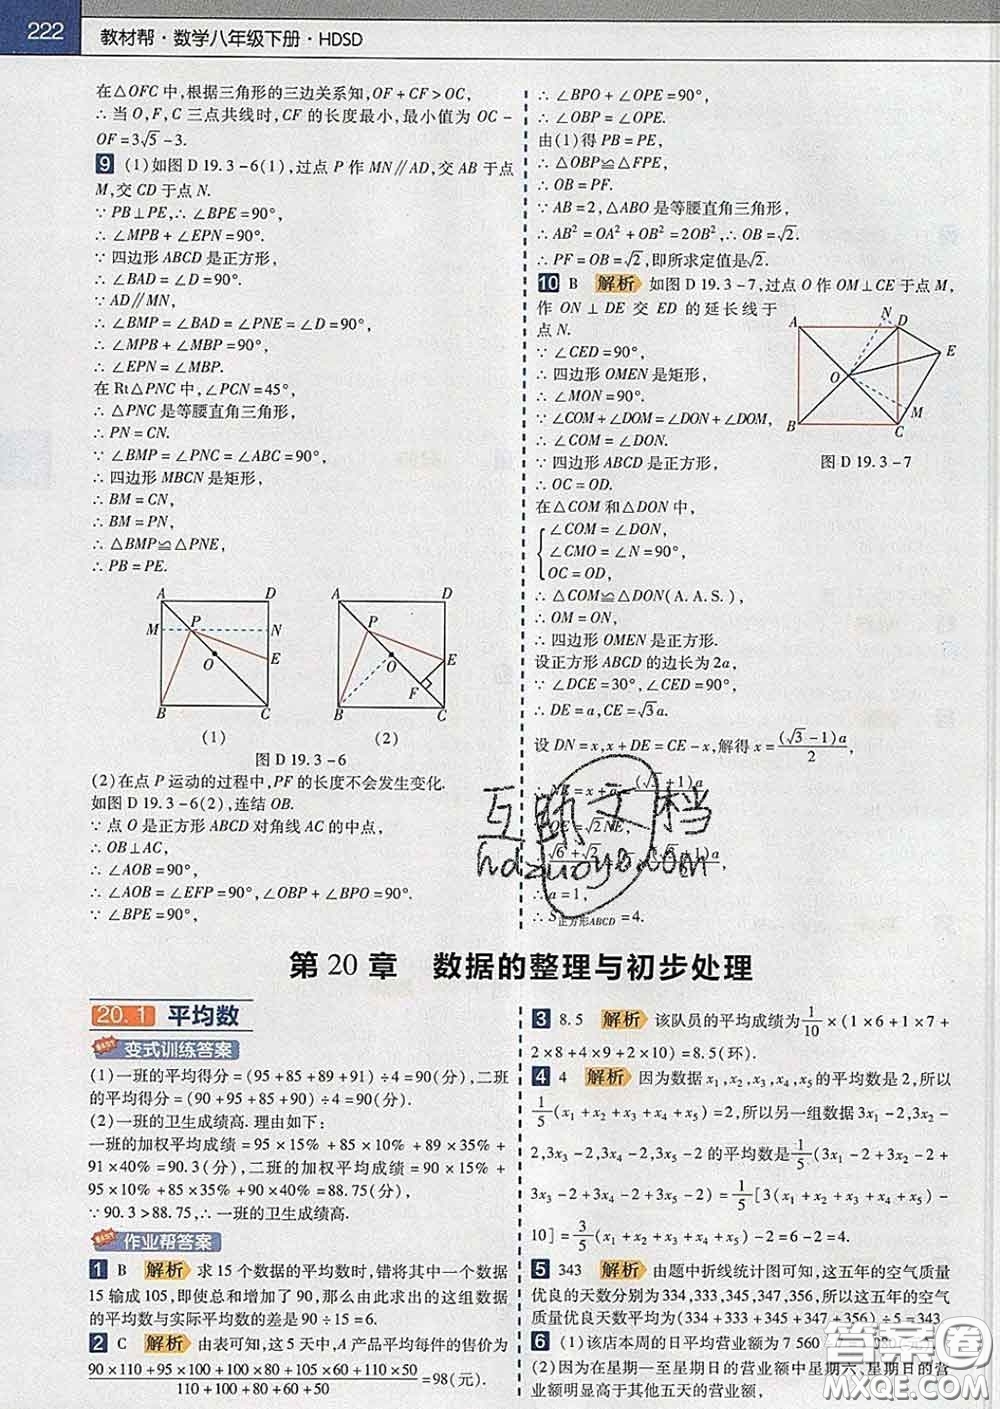 222
教材帮·数学八年级下册·HDSD
在△OFC中,根据三角形的三边关系知,OF+CF>OC,
∴当O,F,C三点共线时,CF的长度最小,最小值为OC-
OF=3√5-3.
9 (1)如图D 19.3-6(1),过点P作MN∥AD,交AB于点
M,交CD于点N.
∵PB⊥PE,∴∠BPE=90°,
∴∠MPB+∠EPN=90°.
∵四边形ABCD是正方形,
∴∠BAD=∠D=90°.
∵AD∥MN,
∴∠BMP=∠BAD=∠PNE=∠D=90°,
∴∠MPB+∠MBP=90°,
∴∠EPN=∠MBP.
在Rt△PNC中,∠PCN=45°,
∴△PNC是等腰直角三角形,
∴PN=CN.
∵∠BMP=∠PNC=∠ABC=90°,
∴四边形MBCN是矩形,
∴BM=CN,
∴BM=PN,
∴△BMP≌△PNE,
∴PB=PE.
A D M P N O E B C
(1)
A D P O E F B C
(2)
图D 19.3-6
(2)在点P运动的过程中,PF的长度不会发生变化.
如图D 19.3-6(2),连结OB.
∵点O是正方形ABCD对角线AC的中点,
∴OB⊥AC,
∴∠AOB=90°,
∴∠AOB=∠EFP=90°,∠OBP+∠BPO=90°.
∵∠BPE=90°,
∴∠BPO+∠OPE=90°,
∴∠OBP=∠OPE.
由(1)得PB=PE,
∴△OBP≌△FPE,
∴OB=PF.
∵AB=2,△ABO是等腰直角三角形,
∴AB²=OA²+OB²=2OB²,∴OB=√2.
∴PF=OB=√2,即所求定值是√2.
10 B 解析 如图D 19.3-7,过点O作OM⊥CE于点M,
作ON⊥DE交ED的延长线于
点N.
∵∠CED=90°,
∴四边形OMEN是矩形,
∴∠MON=90°.
∵∠COM+∠DOM=∠DON+∠DOM,
∴∠COM=∠DON.
∵四边形ABCD是正方形,
∴OC=OD.
在△COM和△DON中,
∠COM=∠DON,
∠CMO=∠N=90°,
OC=OD,
∴△COM≌△DON(A.A.S.),
∴OM=ON,
∴四边形OMEN是正方形.
设正方形ABCD的边长为2a,
∵∠DCE=30°,∠CED=90°,
∴DE=a,CE=√3a.
设DN=x,x+DE=CE-x,解得x=(√3-1)a/2,
∴NE=x+a=(√3+1)a/2,
OE=√2NE,
(√6+√2)/
∴a=1,
∴S正方形ABCD=4.
A N D E O M B C
图D 19.3-7
互助文档
hdzuoye.com
第20章 数据的整理与初步处理
20.1 平均数
变式训练答案
(1)一班的平均得分=(95+85+89+91)÷4=90(分),二班
的平均得分=(90+95+85+90)÷4=90(分).
(2)一班的卫生成绩高.理由如下:
一班的加权平均成绩=95×15%+85×10%+89×35%+
91×40%=90.3(分),二班的加权平均成绩=90×15%+
95×10%+85×35%+90×40%=88.75(分),
∵90.3>88.75,∴一班的卫生成绩高.
作业帮答案
1 B 解析 求15个数据的平均数时,错将其中一个数据
15输成105,即使总和增加了90,那么由此求出的这组数据
的平均数与实际平均数的差是90÷15=6.
2 C 解析 由表可知,这5天中,A产品平均每件的售价为
(90×110+95×100+100×80+105×60+110×50)/(110+100+80+60+50)=98(元).
3 8.5 解析 该队员的平均成绩为1/10×(1×6+1×7+
2×8+4×9+2×10)=8.5(环).
4 4 解析 因为数据x₁,x₂,x₃,x₄,x₅的平均数是2,所以
1/5(x₁+x₂+x₃+x₄+x₅)=2,所以另一组数据3x₁-2,3x₂-
2,3x₃-2,3x₄-2,3x₅-2的平均数是1/5(3x₁-2+3x₂-2+
3x₃-2+3x₄-2+3x₅-2)=1/5[3(x₁+x₂+x₃+x₄+x₅)-
10]=3/5(x₁+x₂+x₃+x₄+x₅)-2=6-2=4.
5 343 解析 由题中折线统计图可知,这五年的空气质量
优良的天数分别为334,333,345,347,356,所以这五年的空气
质量优良天数平均为(334+333+345+347+356)÷5=343.
6 (1)该店本周的日平均营业额为7 560
(2)因为在星期一至星期日的营业额中星期六、星期日的营
业额明显高于其他五天的营业额,
答案圈
MXQE.COM